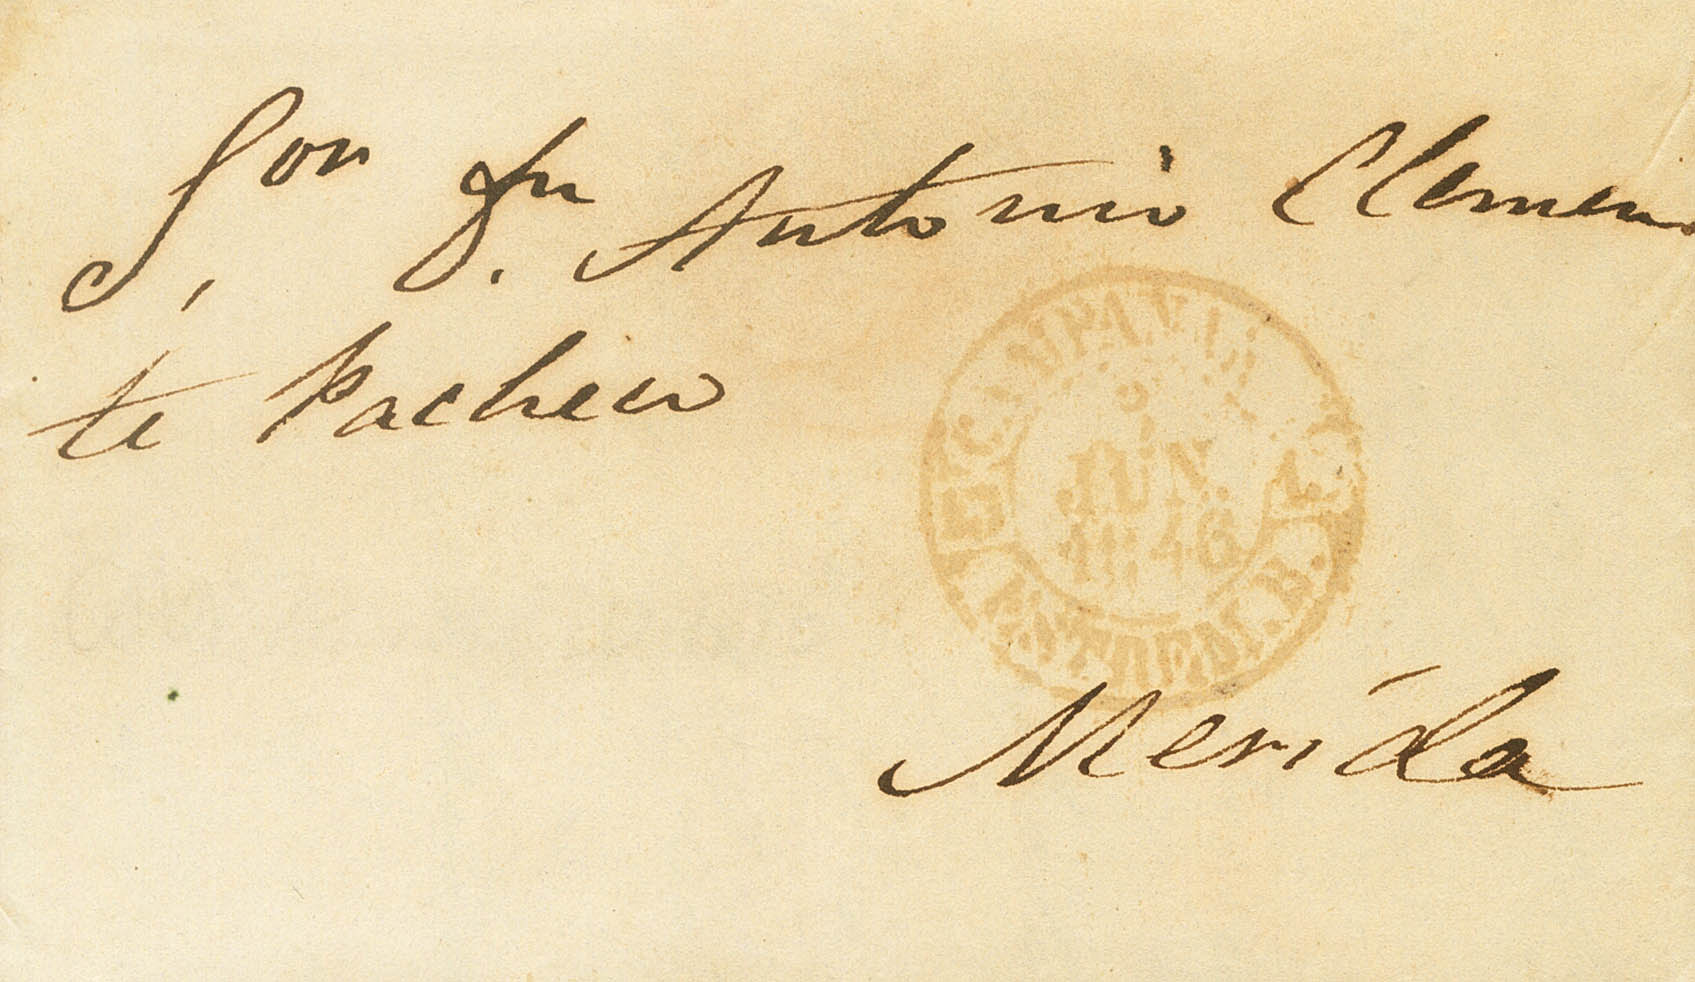 Sor Dn. Antonio Clemen
te Pacheco
CAMPANA
JUN
1846
ESTREM. B.
Merída